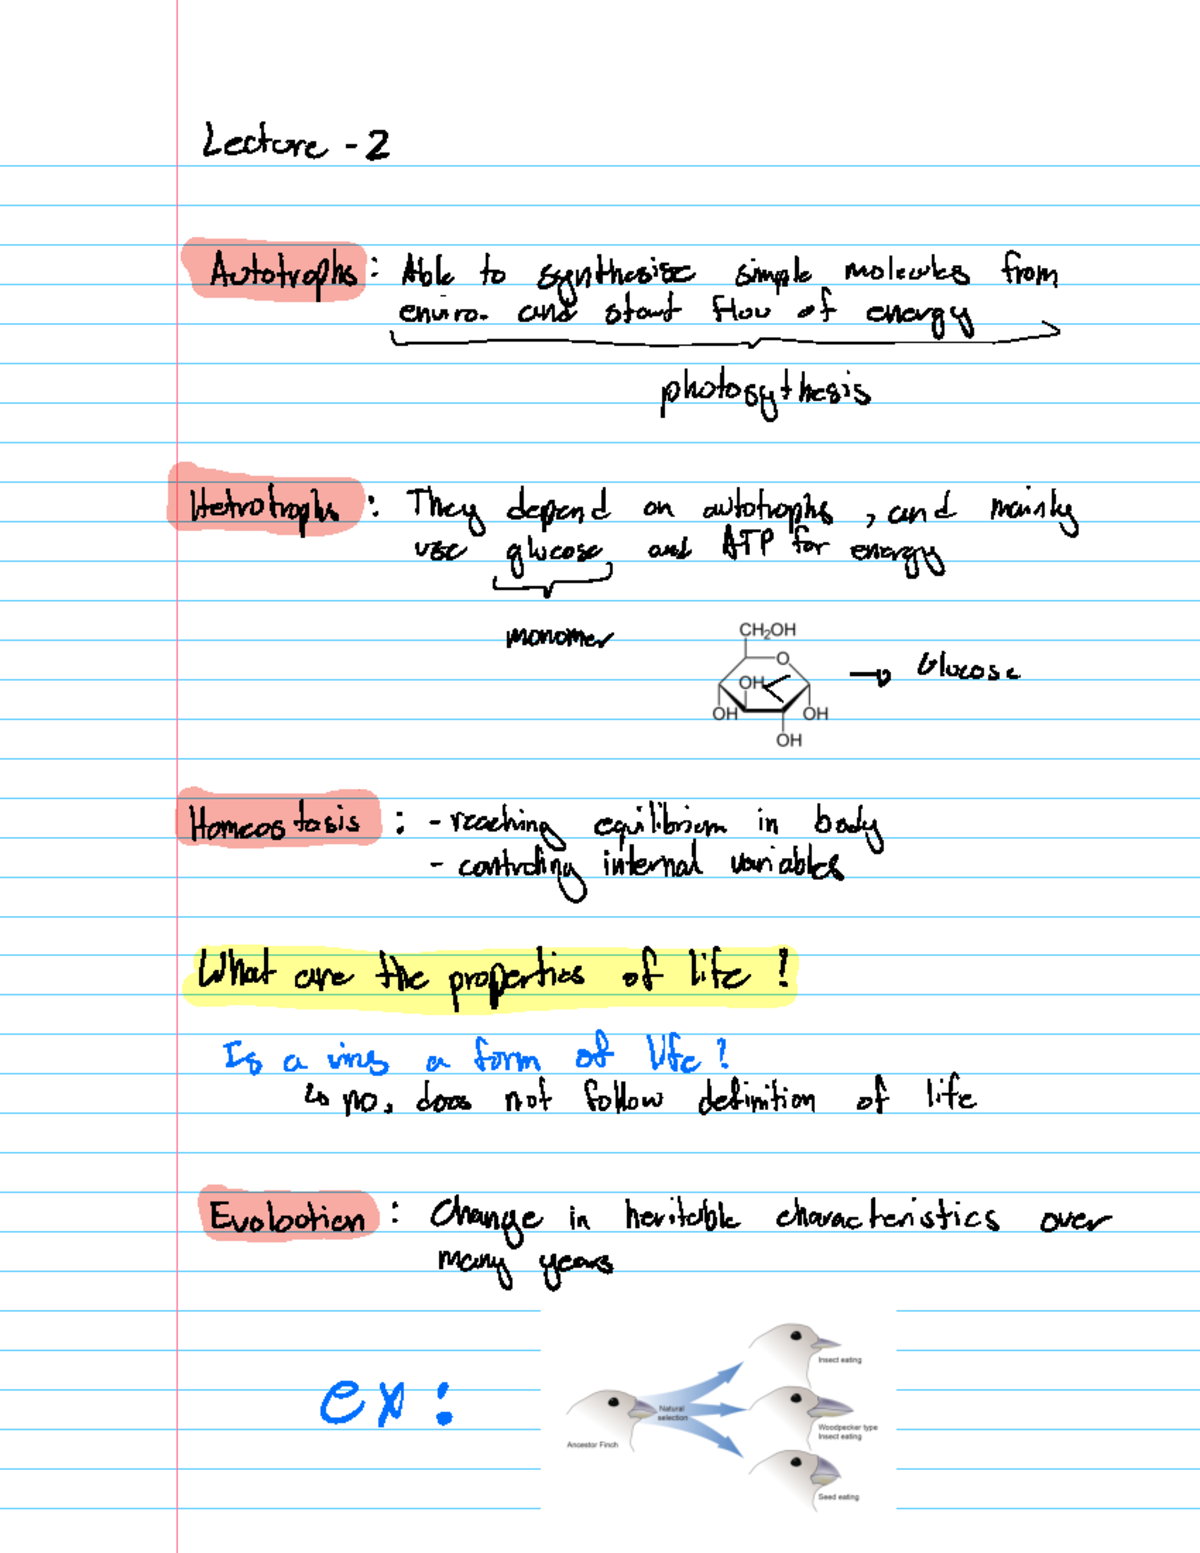 Lecture - 2
Autotrophs : Able to synthesise simple molecules from
enviro. and start flow of energy
photosythesis
Hetrotrophs : They depend on autotrophs , and mainly
use glucose and ATP for energy
monomer
CH₂OH
O
OH
OH
OH
OH
→ Glucose
Homeostasis : - reaching equilibrium in body
- controling internal variables
What are the properties of life ?
Is a virus a form of life ?
↳ no, does not follow definition of life
Evolootion : Change in heritable characteristics over
many years
ex :
Insect eating
Natural
selection
Ancestor Finch
Woodpecker type
Insect eating
Seed eating